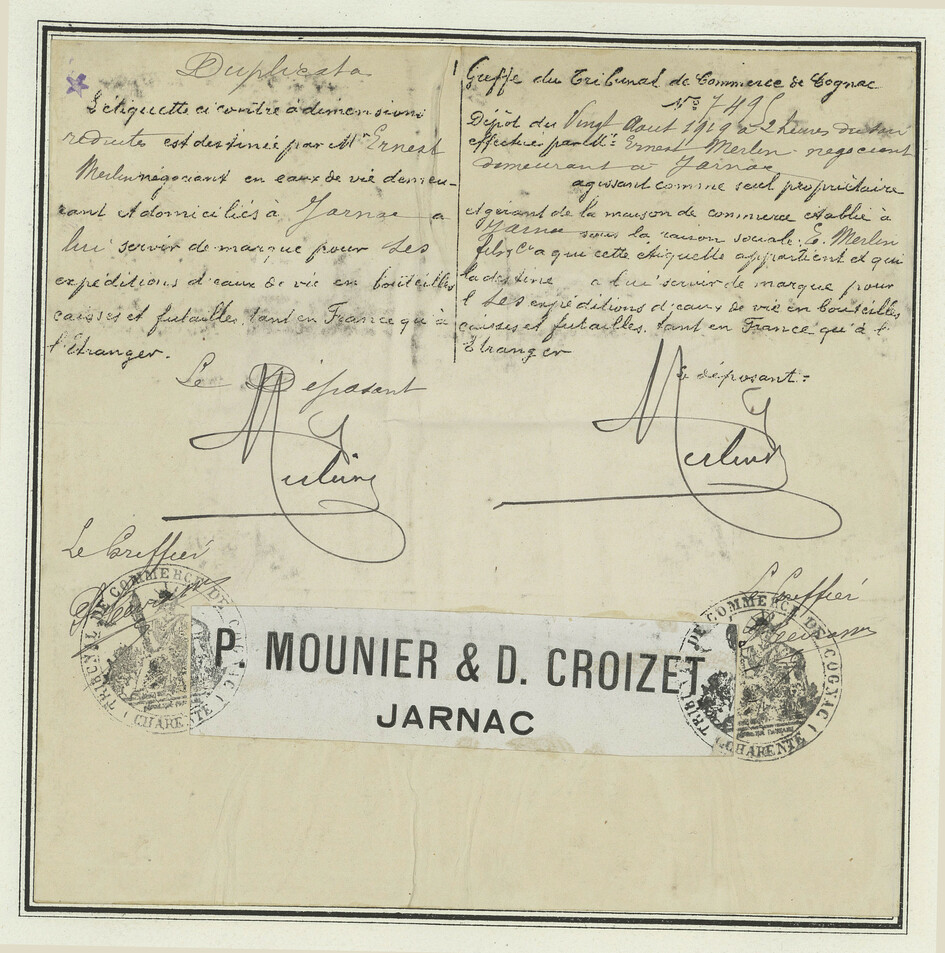 Duplicata
L'étiquette ci contre à dimensions
reduites est destinée par Mr Ernest
Merlin négociant en eaux de vie demeu-
rant et domiciliés à Jarnac a
lui servir de marque pour ses
expéditions d'eaux de vie en bouteilles
caisses et futailles, tant en France qu'à
l'étranger.
Le Déposant
Merlin
Le Greffier
Greffe du Tribunal de Commerce de Cognac
No 749
Dépôt du Vingt Aout 1919 à 2 heures du soir
effectué par Mr Ernest Merlin negociant
demeurant a Jarnac
agissant comme seul propriétaire
et gérant de la maison de commerce établie à
Jarnac sous la raison sociale: E. Merlin
fils & Cie a qui cette étiquette appartient et qui
la destine a lui servir de marque pour
ses expéditions d'eaux de vie en bouteilles
caisses et futailles, tant en France qu'à l'
étranger
Le déposant:
Merlin
Le Greffier
TRIBUNAL DE COMMERCE DE COGNAC
(CHARENTE)
P. MOUNIER & D. CROIZET
JARNAC
TRIBUNAL DE COMMERCE DE COGNAC
(CHARENTE)